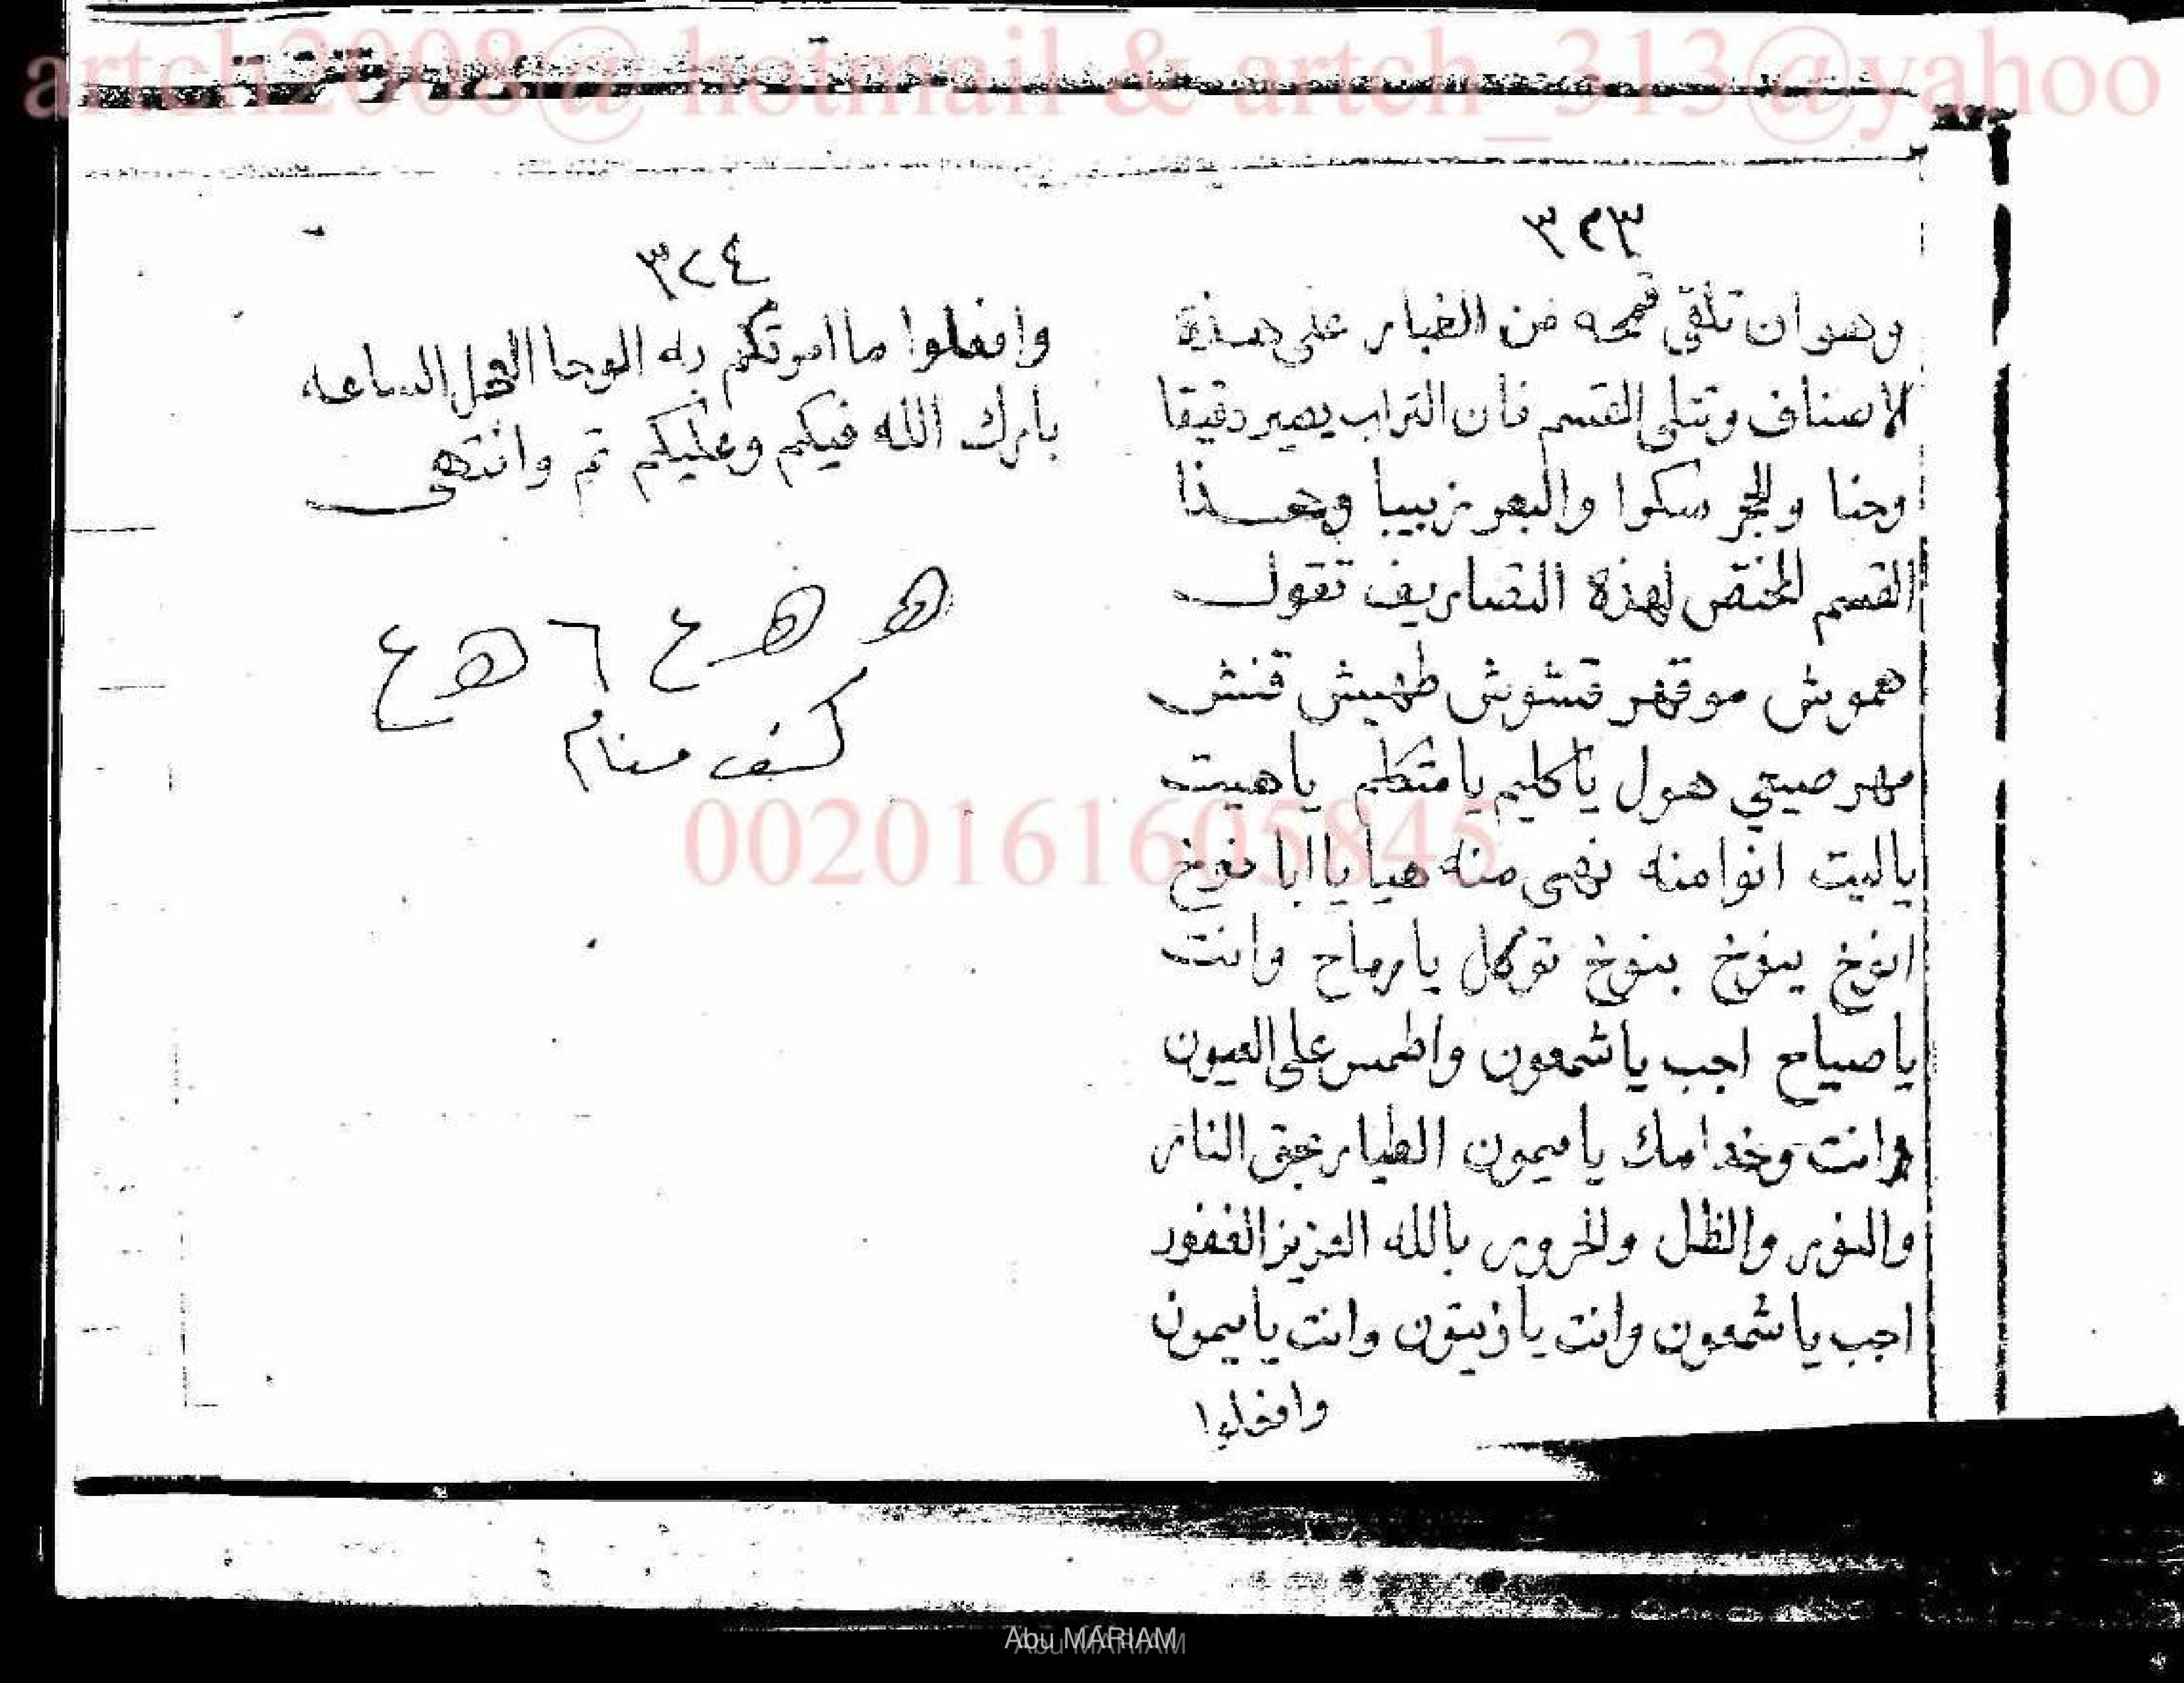 artch2008@ hotmail & artch_313@yahoo
٣٢٣
وهو ان تلقى قمحه من الغبار على هذة
الاصناف وتتلى القسم فان التراب يصير دقيقا
وحنا والحجر سكرا والبعر زبيبا وهذا
القسم المختص لهذة التصاريف تقول
هموش موقهر قشوش طهيش قنش
مهر صيحي هول ياكليم يا متكلم ياهيت
ياليت انوا منه نهى منه هيا يا ابا نوخ
انوخ ينوخ بنوخ توكل يا رماح وانت
يا صياح اجب يا شمعون واطمس على العيون
وانت وخدامك يا ميمون الطيار بحق النار
والنور والظل والحرور بالله العزيز الغفور
اجب يا شمعون وانت يا زيتون وانت يا ميمون
وافعلوا
٣٢٤
وافعلوا ما امرتكم به الوحا العجل الساعه
بارك الله فيكم وعليكم تم وانتهى
ه ه ع ٦ ه ع
كشف منام
00201616 05845
Abu MARIAM